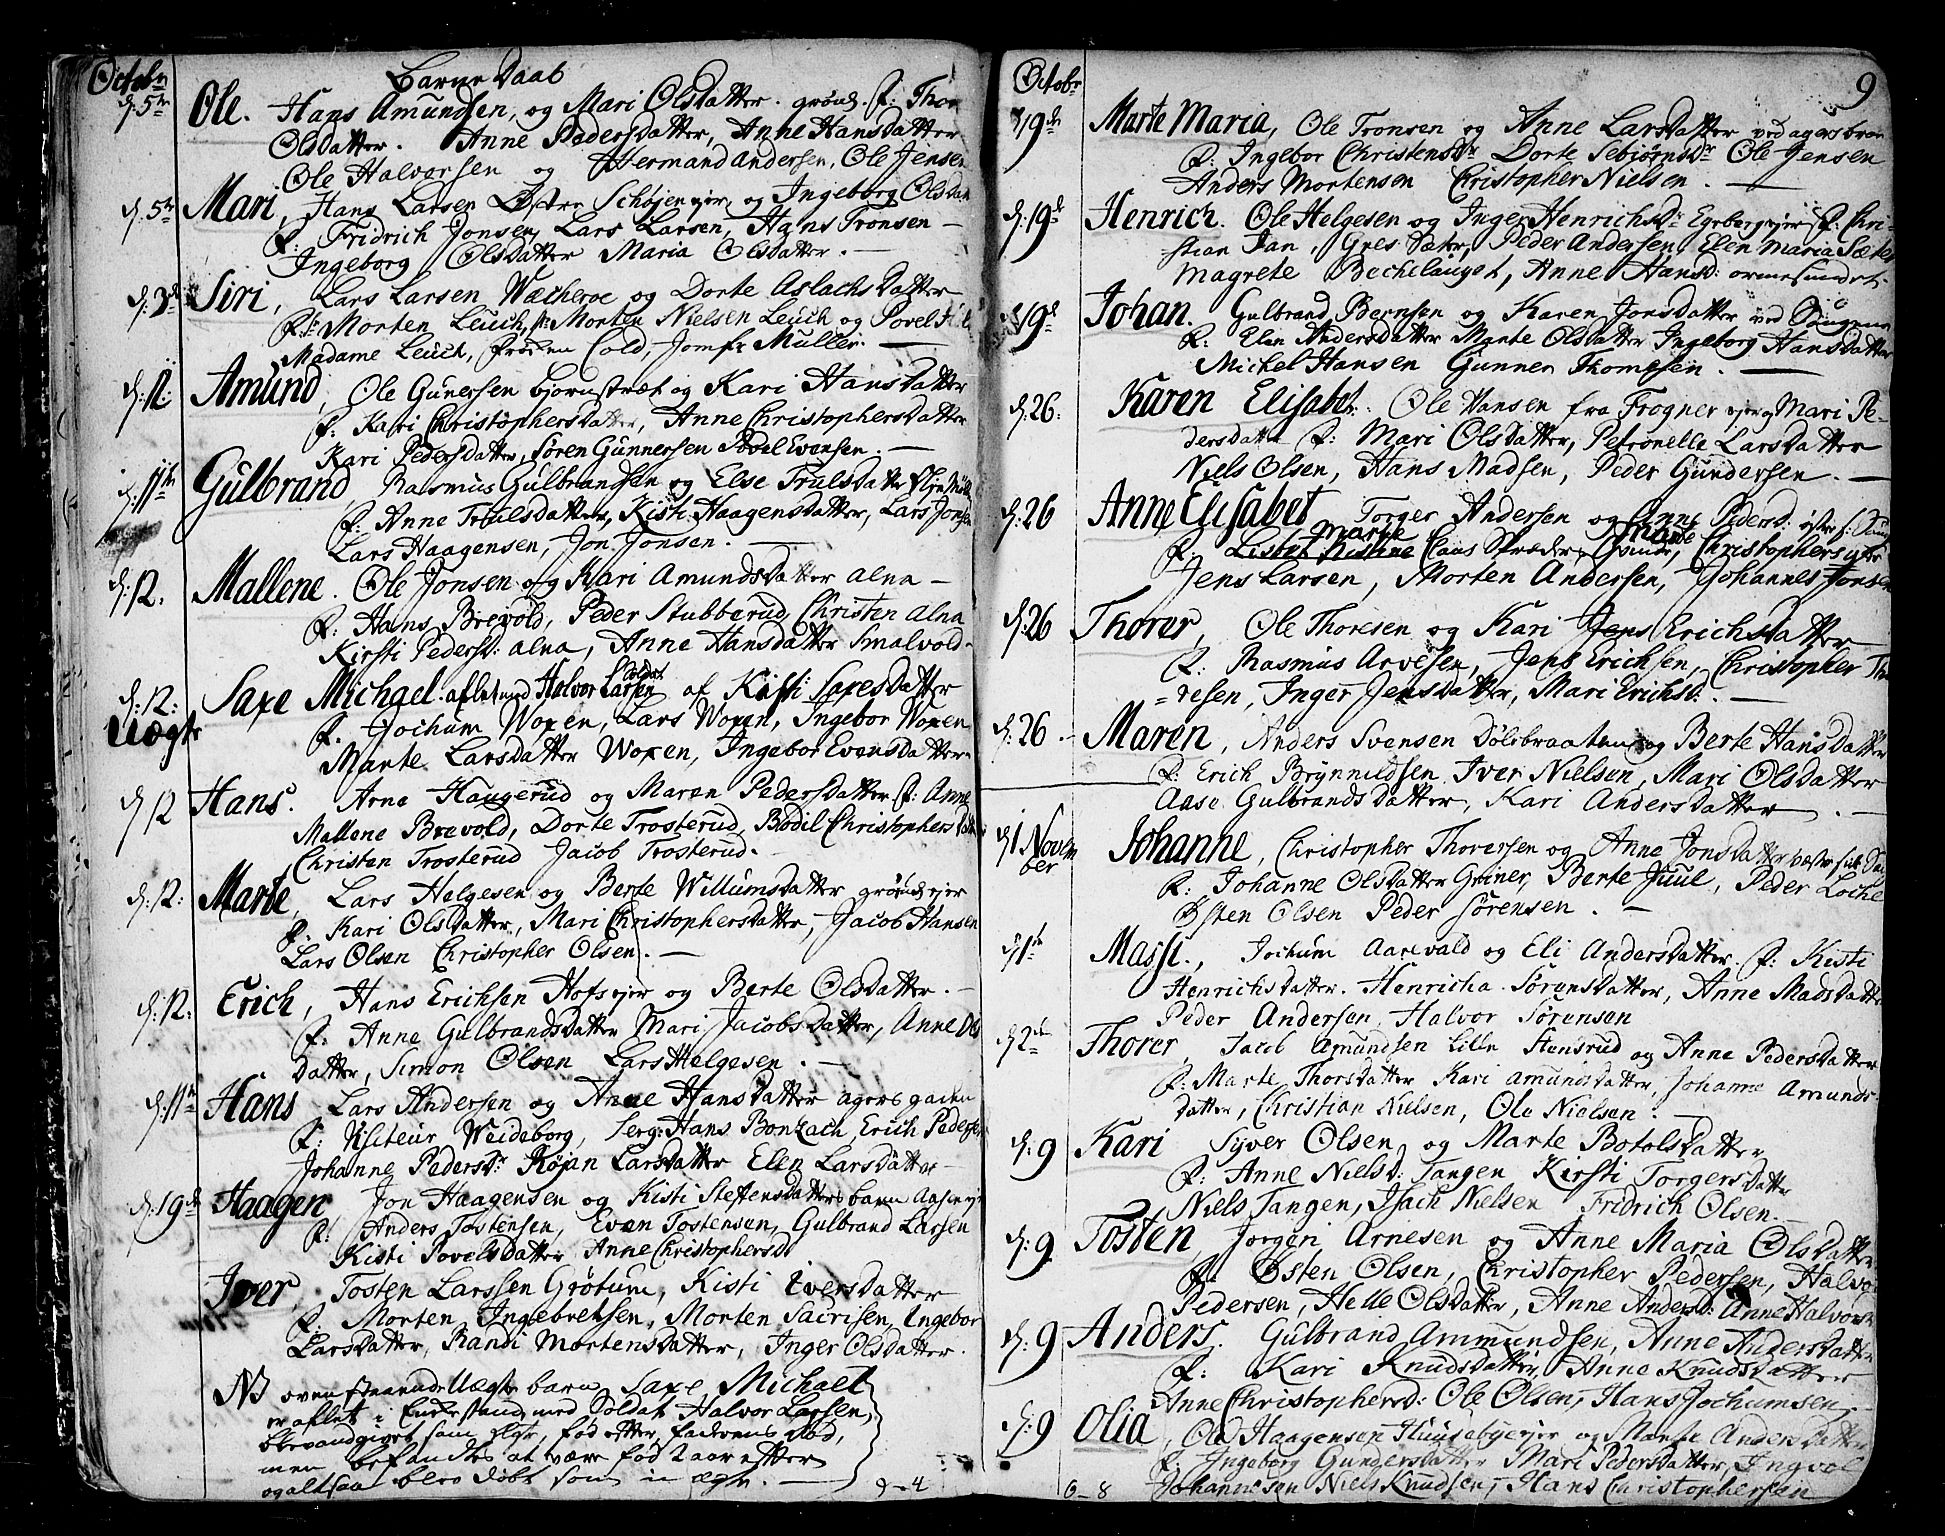 Octobr
Barne Daab
d: 5te Ole. Hans Amundsen, og Mari Olsdatter. grönd. F: Thor
Olsdatter. Anne Pedersdatter, Anne Hansdatter
Ole Halvorsen og Hermand Andersen, Ole Jensen
d. 5te Mari, Hans Larsen Østre Schöjen ejer, og Ingeborg Olsdatt
F: Fridrich Jonsen, Lars Larsen, Hans Tronsen —
Ingeborg Olsdatter Maria Olsdatter. —
d: 3d Siri, Lars Larsen Wæcheroe og Dorte Aslachsdatter
F: Hr Morten Leuch, Hr Morten Nielsen Leuch og Povel
Madame Leuch, frøken Cold, Jomfr Muller. —
d: 12: Amund, Ole Gunersen bjornstræt og Kari Hansdatter
F: Kari Christophersdatter, Anne Christophersdatter
Kari Pedersdatter, Sören Gunnersen Povel Evensen. —
d. 11te Gulbrand, Rasmus Gulbrandsen og Else Trulsdatter
F: Anne Trulsdatter, Kisti Haagensdatter, Lars Jonsen
Lars Haagensen, Jon Jonsen. —
d: 12. Mallene. Ole Jonsen og Kari Amundsdatter alna —
F: Hans Brevold, Peder Stubberud, Christen alna
Kirsti Pedersd: alna, Anne Hansdatter Smalvold.
d: 12: Saxe Michael aflet ved Soldat Halvor Larsen af Kisti Saxesdatter
Uægte F. Jochum Woxen, Lars Woxen, Ingebor Woxen
Marte Larsdatter Woxen, Ingebor Evensdatter
d 12 Hans. Arne Haugerud og Maren Pedersdatter F: Anne
Mallene Brevold, Dorte Trosterud, Bodil Christophersdatter
Christen Trosterud Jacob Trosterud. —
d: 12: Marte, Lars Helgesen og Berte Willumsdatter grönd ejer
F. Kari Olsdatter, Mari Christophersdatter, Jacob Hansen
Lars Olsen Christopher Olsen. —
d: 12: Erich, Hans Erichsen Hofs ejer og Berte Olsdatter. —
F: Anne Gulbrandsdatter Mari Jacobsdatter, Anne Ols
Datter, Simon Olsen Lars Helgesen. —
d: 11te Hans Lars Andersen og Anne Hansdatter agers gaden
F: Visiteur Weideborg, Serg: Hans Bontzach, Erich Pedersen
Johanne Pedersdr Röjan Larsdatter Elen Larsdatter —
d: 19d Haagen Jon Haagensen og Kisti Steffensdatters barn Aasen ejer
F: Anders Tostensen, Even Tostensen, Gulbrand Larsen
Kisti Povelsdatter Anne Christophersd.
Iver, Tosten Larssen Grötum, Kisti Iversdatter
F. Morten Ingebretsen, Morten Sacrisen, Ingebor
Larsdatter, Randi Mortensdatter, Inger Olsdatter.
NB ovenstaaende Uægte barn Saxe Michael
er aflet i Enkestand med Soldat Halvor Larsen,
blev angivet som ægte, fød efter faderens död,
men befandtes at være fød 2 aar efter
og altsaa blev döbt som uægte. —
9–4
Octobr
9
19de Marte Maria, Ole Tronsen og Anne Larsdatter ved agers broe
F: Ingebor Christensdr Dorte Sebiørnsdr Ole Jensen
Anders Mortensen Christopher Nielsen. —
d. 19d Henrich. Ole Helgesen og Inger Henrichsdr Egeberg ejer F: Chri-
stian Jan, Gres Sæter, Peder Andersen, Elen Maria Sæter
Magrete Bechelauget, Anne Hansd: ormesundet.
19d Johan. Gulbrand Bernsen og Karen Jonsdatter ved Saugene
F: Elen Andersdatter Marte Olsdatter Ingeborg Hansdatter
Michel Hansen Gunner Thompsen. —
d: 26: Karen Elisabet. Ole Hansen fra Frogner ejer og Mari Pe-
dersdatter F: Mari Olsdatter, Petronelle Larsdatter
Niels Olsen, Hans Madsen, Peder Gundersen. —
d: 26 Anne Elisabet Torger Andersen og Anne Pedersd:
F. Lisbet Kistine Marte Claus Christophers
Jens Larsen, Morten Andersen, Johannes Jonsen
d: 26 Thorer, Ole Thoresen og Kari Jens Erichsdatter
F: Rasmus Arvesen, Jens Erichsen, Christopher Tho
=resen, Inger Jensdatter, Mari Erichsd. —
d: 26 Maren, Anders Svensen Dölibraaten og Berte Hansdatter
F: Erich Brynnildsen Iver Nielsen, Mari Olsdatter
Aase Gulbrandsdatter, Kari Andersdatter. —
d 1 Novem
ber Johanne, Christopher Thoresen og Anne Jonsdatter
F: Johanne Olsdatter Griner, Berte Juul, Peder Loche
Østen Olsen Peder Sörensen. —
d 1te Massi., Jochum Aarvald og Eli Andersdatter. F: Kisti
Henrichsdatter. Henricha Sörensdatter, Anne Madsdatter
Peder Andersen, Halvor Sörensen
d 2den Thorer, Jacob Amundsen Lille Stensrud og Anne Pedersdatter
F: Marte Thorsdatter Kari Amundsdatter, Johanne Amunds-
datter, Christian Nielsen, Ole Nielsen. —
d: 9 Kari Syver Olsen, og Marte Botolsdatter
F: Anne Nielsd: Tangen Kirsti Torgersdatter
Niels Tangen, Isach Nielsen Fridrich Olsen. —
d: 9 Tosten, Jorgen Arnesen og Anne Maria Olsdatter
F: Østen Olsen, Christopher Pedersen, Halvor
Pedersen, Helle Olsdatter, Anne Andersd: Anne Halvors
d: 9 Anders. Gulbrand Ammundsen, Anne Andersdatter
F: Kari Knudsdatter, Anne Knudsdatter
Anne Christophersd: Ole Olsen, Hans Jochumsen, —
d: 9 Olia, Ole Haagensen Huuseby ejer og Marte Andersdatter
F: Ingeborg Gundersdatter Mari Pedersdatter, Ingvol
Johannesen Niels Knudsen, Hans Christophersen
6–8